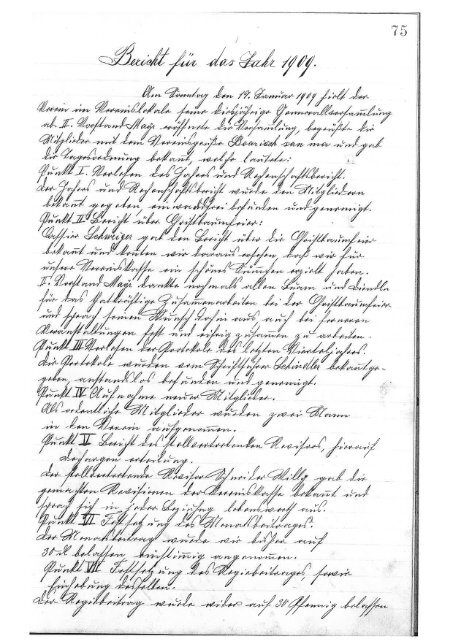 75
Bericht für das Jahr 1909.
Am Sonntag den 17. Januar 1909 hielt der
Verein im Vereinslokale seine diesjährige Generallversammlung
ab. II. Vorstand Mayr eröffnete die Versamlung, begrüßte die
Mitglieder mit dem Vereinsgruße und gab
die Tagesordnung bekant, welche lautete:
Punkt I. Verlesen des Jahres und Rechenschaftsbericht.
Der Jahres und Rechenschaftsbericht wurde den Mitgliedern
bekant gegeben, einwandfrei befunden und genemigt.
Punkt II Bericht über Christbaumfeier:
Cassier gab den Bericht über die Christbaumfeier
bekant und konten wir daraus ersehen, daß wir für
unsere Vereinskasse ein schönes Sümchen erziehlt haben.
II. Vorstand Mayr dankte nochmals allen
für das Zusammenarbeiten bei der Christbaumfeier
und sprach seinen Wunsch dahin aus, auch bei ferneren
Veranstaltungen fest und eifrig zusammen zu arbeiten.
Punkt III Verlesen der Protokole des letzten Vierteljahres.
Die Protokole wurden vom Schriftführer Schindler bekantge-
geben, anstandslos befunden und genemigt.
Punkt IV Aufnahme neuer Mitglieder.
Als ordentliche Mitglieder wurden zwei Mann
in den Verein aufgenommen.
Punkt V Bericht des stellvertretenden Revisors, hierauf
Dechargen erteilung.
Der stellvertretende Revisor Schneider Willy gab die
gemachten Revisionen der Vereinskasse bekant und
sprach sich in jeder Beziehung lobenswert aus.
Punkt VI Festsetzung des Monatsbeitrages:
Der Monatsbeitrag wurde wie bisher auf
30 belassen, einstimmig angenommen.
Punkt VII Festsetzung des Regiebeitrages, sowie
Einhebung desselben.
Der Regiebeitrag wurde wider auf 30 Pfennig belassen